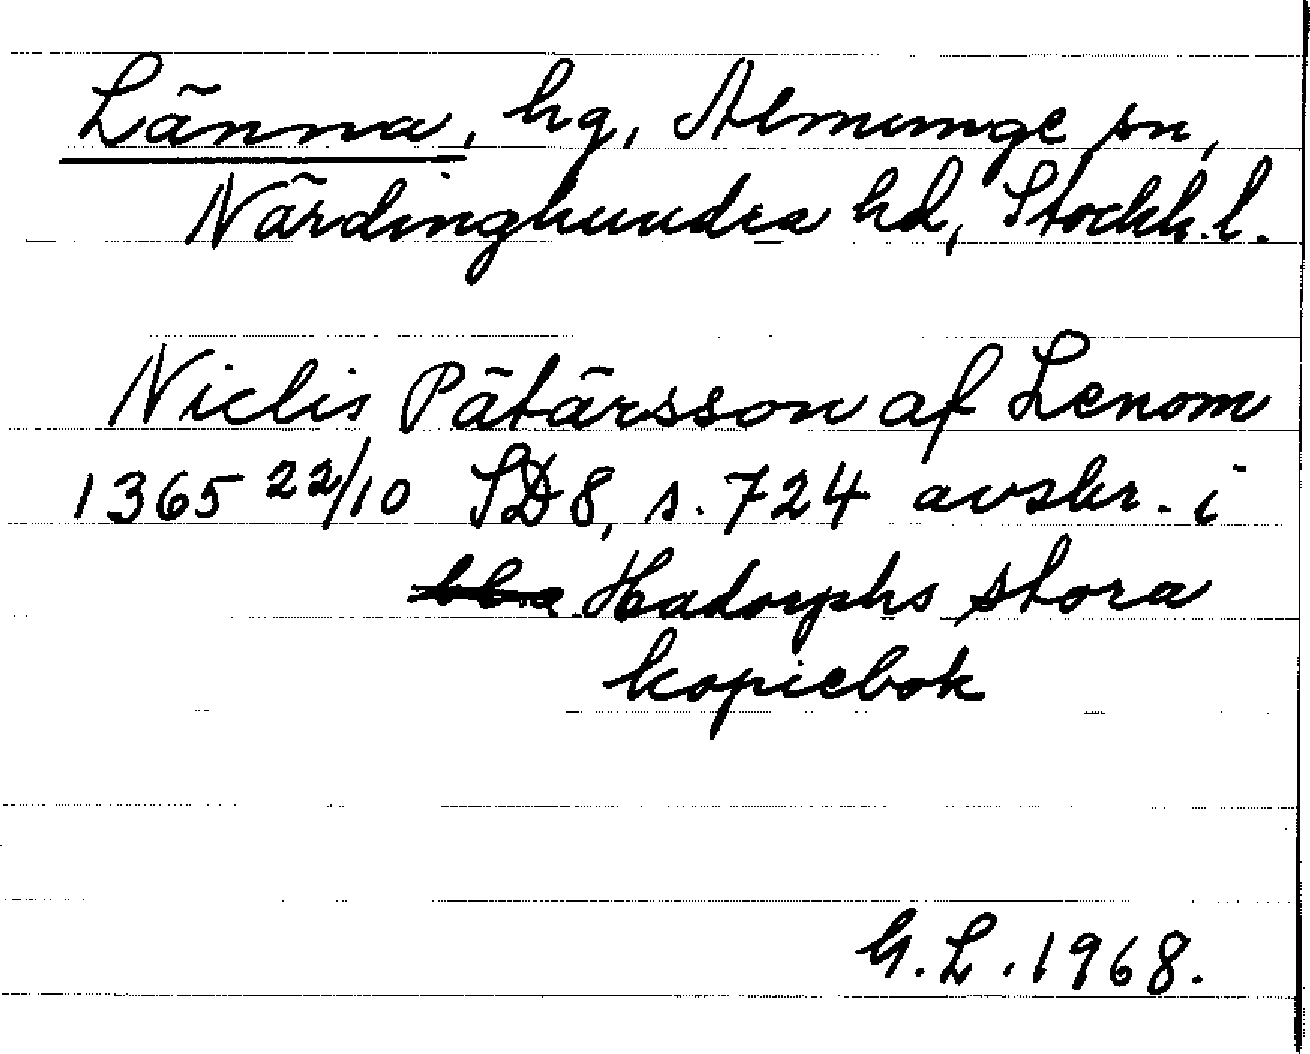 Länna, hg, Almunge sn,
Närdinghundra hd, Stockh.l.
Niclis Pätärsson af Lenom
1365 22/10 SD8, s. 724 avskr. i
Hadorphs stora
kopiebok
G.L. 1968.